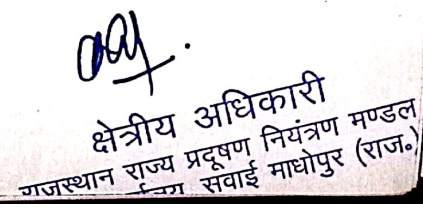 क्षेत्रीय अधिकारी
राजस्थान राज्य प्रदूषण नियंत्रण मण्डल
सवाई माधोपुर (राज॰)